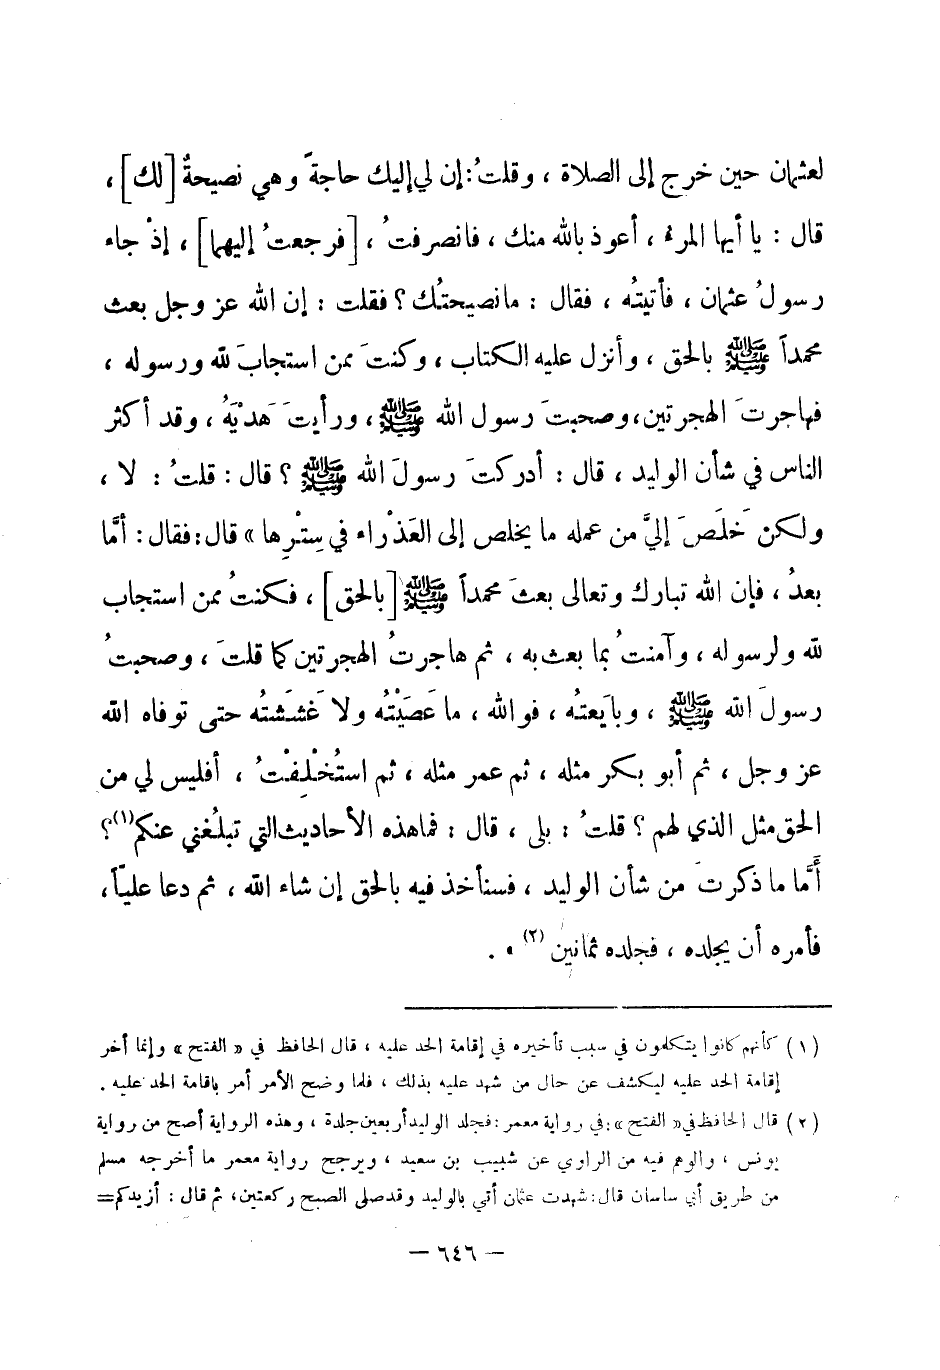 لعثمان حين خرج إلى الصلاة ، وقلتُ : إن لي إليك حاجةً وهي نصيحةٌ [ لك ] ،
قال : يا أيها المرء ، أعوذ بالله منك ، فانصرفتُ ، [ فرجعتُ إليهما ] ، إذْ جاء
رسولُ عثمان ، فأتيتُه ، فقال : ما نصيحتُك ؟ فقلت : إن الله عز وجل بعث
محمداً ﷺ بالحق ، وأنزل عليه الكتاب ، وكنتَ ممن استجابَ لله ورسوله ،
فهاجرتَ الهجرتين ، وصحبتَ رسول الله ﷺ ، ورأيتَ هَدْيَهُ ، وقد أكثر
الناس في شأن الوليد ، قال : أدركتَ رسولَ الله ﷺ ؟ قال : قلتُ : لا ،
ولكن خَلَصَ إليَّ من عمله ما يخلص إلى العَذْراء في سِتْرِها » قال : فقال : أمَّا
بعدُ ، فإن الله تبارك وتعالى بعثَ محمداً ﷺ [ بالحق ] ، فكنتُ ممن استجاب
لله ولرسوله ، وآمنتُ بما بعث به ، ثم هاجرتُ الهجرتين كما قلتَ ، وصحبتُ
رسولَ الله ﷺ ، وبايَعتُه ، فوالله ، ما عَصَيْتُه ولا غَشَشتُه حتى توفاه الله
عز وجل ، ثم أبو بكر مثله ، ثم عمر مثله ، ثم استُخْلِفْتُ ، أفليس لي من
الحق مثل الذي لهم ؟ قلتُ : بلى ، قال : فما هذه الأحاديث التي تبلُغني عنكم (١) ؟
أمَّا ما ذكرتَ من شأن الوليد ، فسنأخذ فيه بالحق إن شاء الله ، ثم دعا عليّاً ،
فأمره أن يجلده ، فجلده ثمانين (٢) » .
(١) كأنهم كانوا يتكلمون في سبب تأخيره في إقامة الحد عليه ، قال الحافظ في « الفتح » وإنما أخر
إقامة الحد عليه ليكشف عن حال من شهد عليه بذلك ، فلما وضح الأمر أمر بإقامة الحد عليه .
(٢) قال الحافظ في « الفتح » : في رواية معمر : فجلد الوليد أربعين جلدة ، وهذه الرواية أصح من رواية
يونس ، والوهم فيه من الراوي عن شبيب بن سعيد ، ويرجح رواية معمر ما أخرجه مسلم
من طريق أبي ساسان قال : شهدت عثمان أتي بالوليد وقد صلى الصبح ركعتين ، ثم قال : أزيدكم =
— ٦٤٦ —